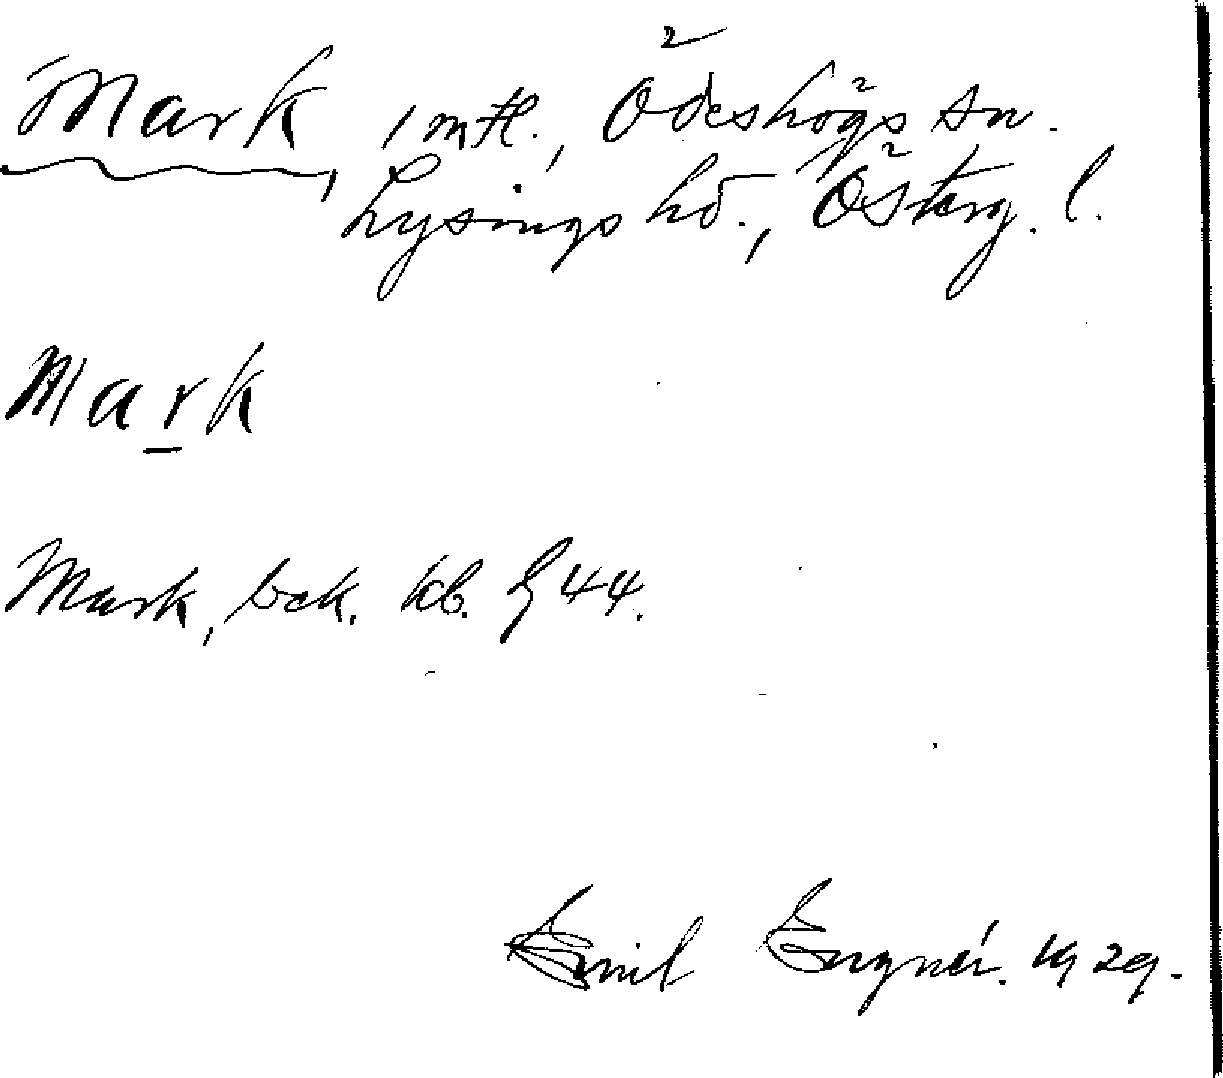 Mark, 1 mtl., Ödeshögs sn.
Lysings hd., Österg. l.
Mark
Mark, bck. kb. § 44.
Emil Engnér. 1929.